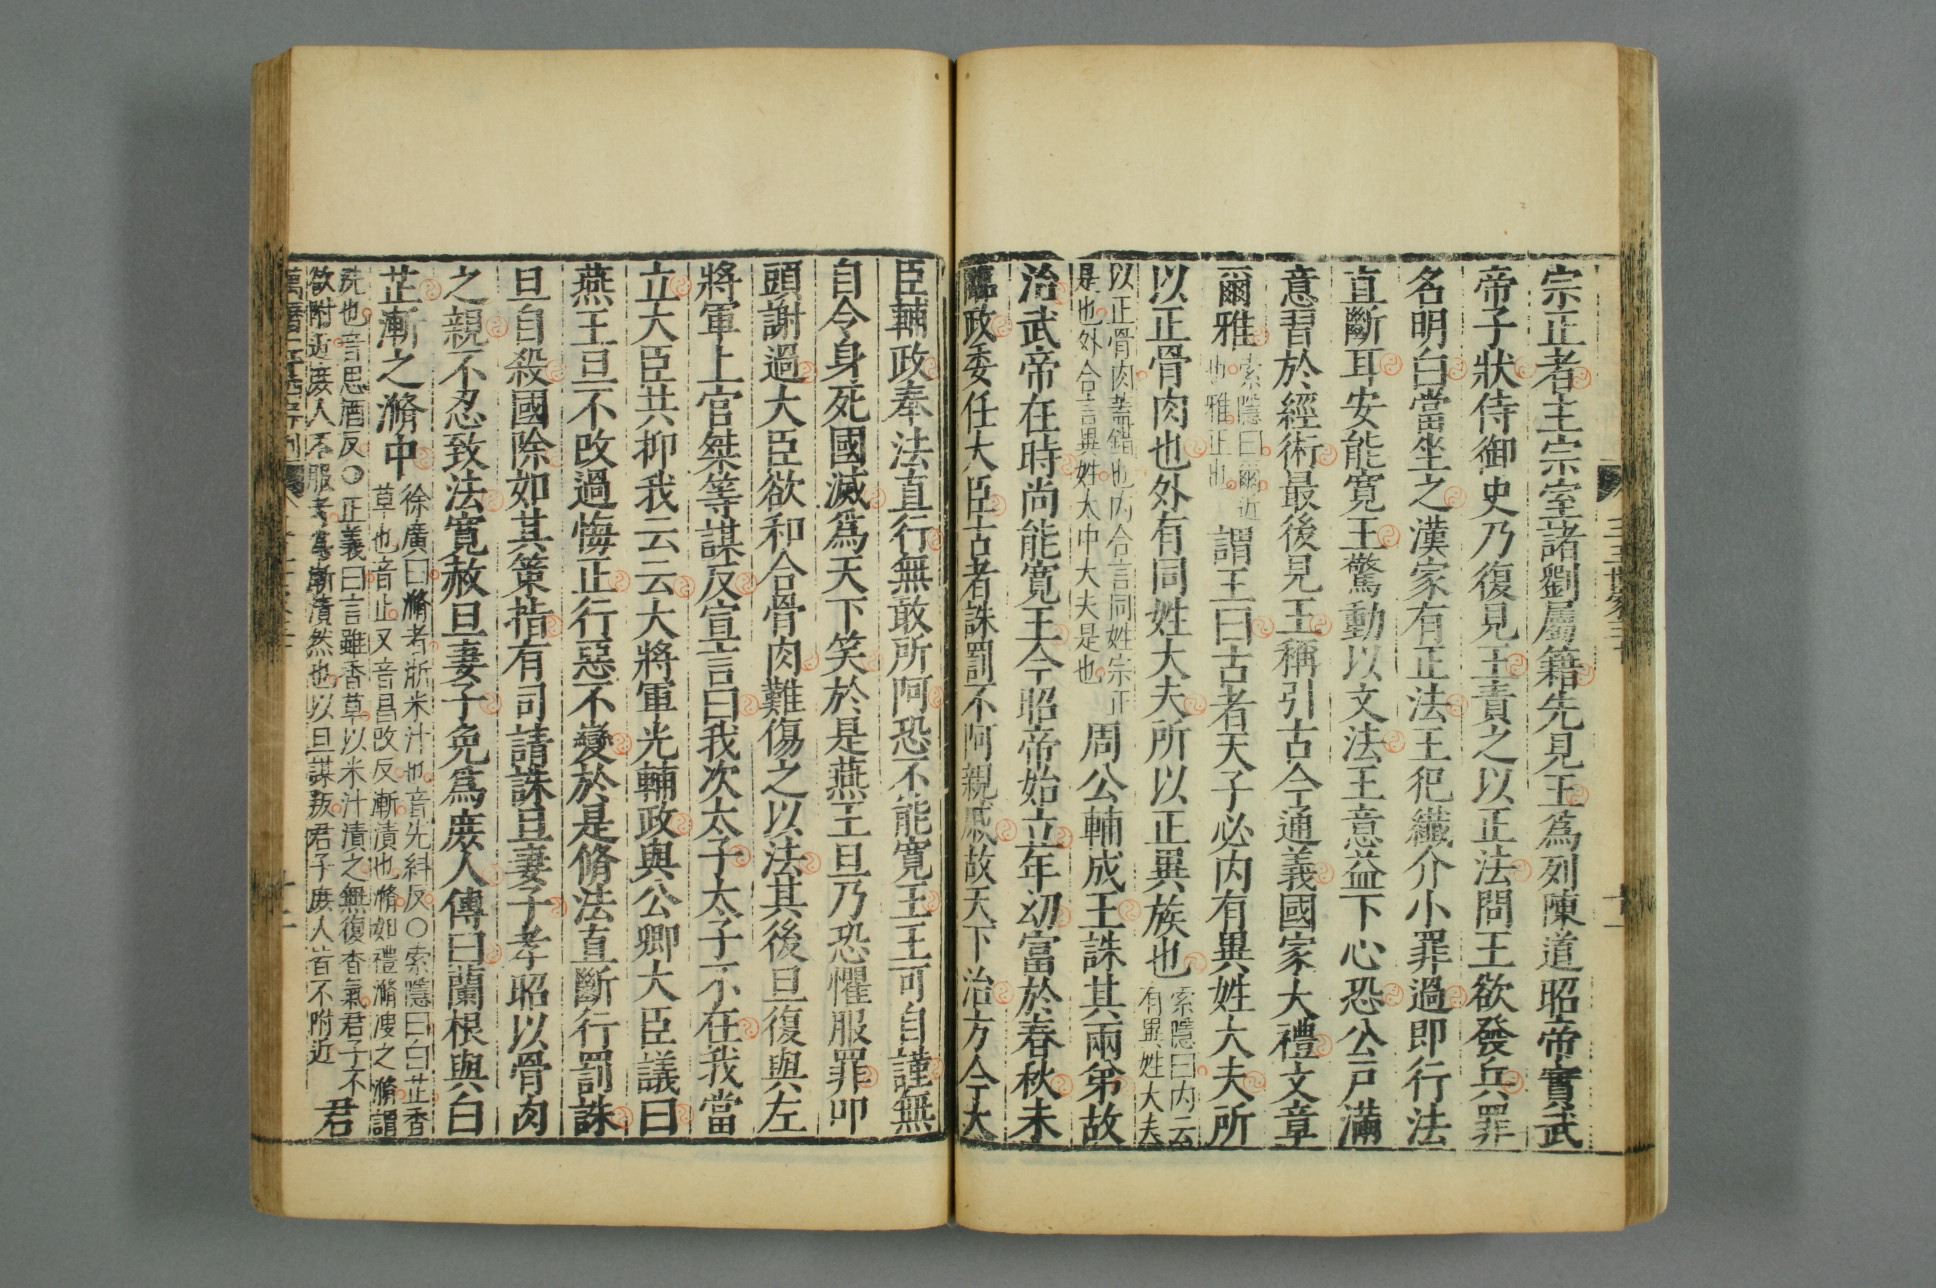 宗正者主宗室諸劉屬籍先見王爲列陳道昭帝實武
帝子狀侍御史乃復見王責之以正法問王欲發兵罪
名明白當坐之漢家有正法王犯纖介小罪過即行法
直斷耳安能寬王驚動以文法王意益下心恐公戶滿
意習於經術最後見王稱引古今通義國家大禮文章
爾雅索隱曰爾近也雅正也謂王曰古者天子必內有異姓大夫所
以正骨肉也外有同姓大夫所以正異族也索隱曰內云有異姓大夫
以正骨肉蓋錯也內合言同姓宗正是也外合言異姓太中大夫是也周公輔成王誅其兩弟故
治武帝在時尚能寬王今昭帝始立年幼富於春秋未
臨政委任大臣古者誅罰不阿親戚故天下治方今大
臣輔政奉法直行無敢所阿恐不能寬王王可自謹無
自令身死國滅爲天下笑於是燕王旦乃恐懼服罪叩
頭謝過大臣欲和合骨肉難傷之以法其後旦復與左
將軍上官桀等謀反宣言曰我次太子太子不在我當
立大臣共抑我云云大將軍光輔政與公卿大臣議曰
燕王旦不改過悔正行惡不變於是脩法直斷行罰誅
旦自殺國除如其策指有司請誅旦妻子孝昭以骨肉
之親不忍致法寬赦旦妻子免爲庶人傳曰蘭根與白
芷漸之滫中徐廣曰滫者淅米汁也音先糾反○索隱曰白芷香草也音止又音昌改反漸漬也滫如禮滫溲之滫謂
洗也音思酒反○正義曰言雖香草以米汁漬之無復香氣君子不欲附近庶人不服者爲漸漬然也以旦謀叛君子庶人皆不附近君